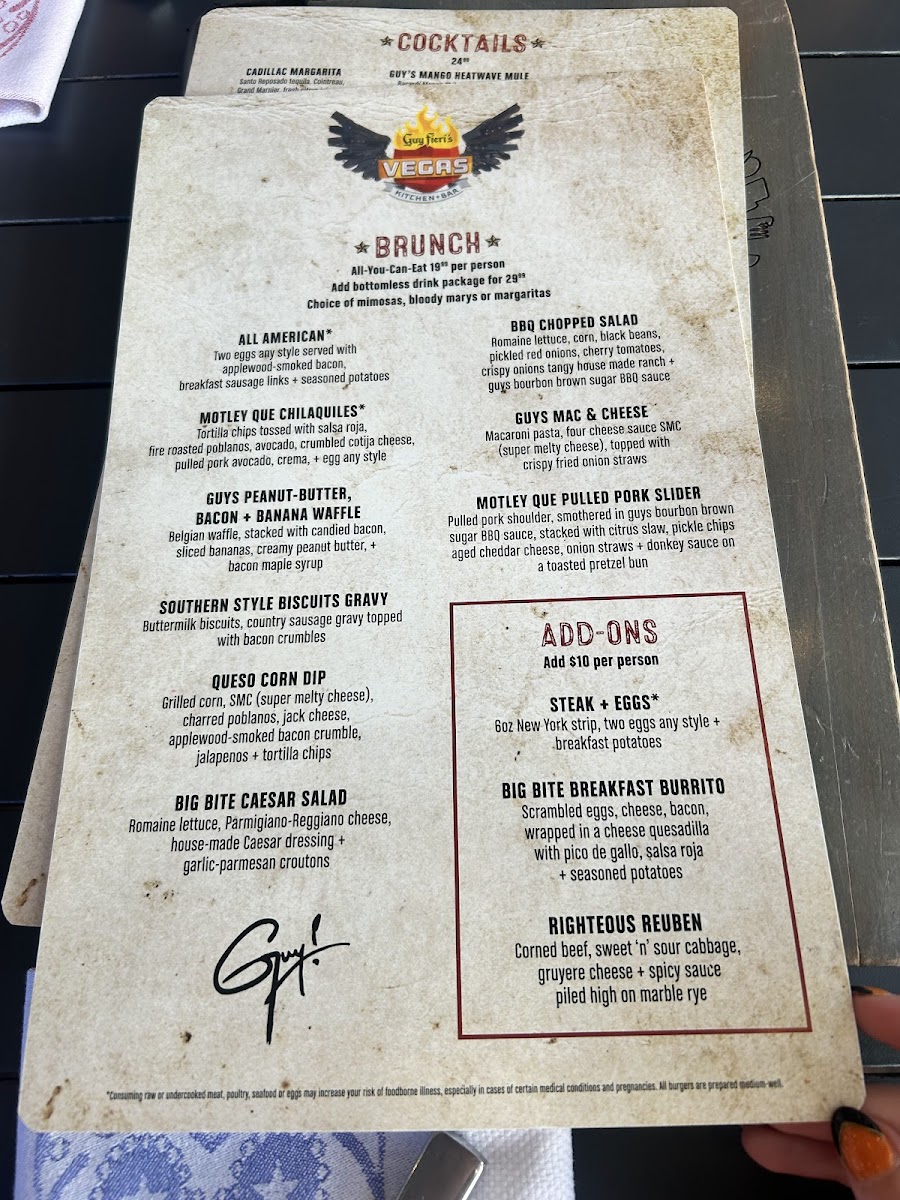 COCKTAILS
24⁹⁹
CADILLAC MARGARITA
Santo Reposado tequila, Cointreau,
Grand Marnier, fresh
GUY'S MANGO HEATWAVE MULE
Guy Fieri's
VEGAS
KITCHEN + BAR
BRUNCH
All-You-Can-Eat 19⁹⁹ per person
Add bottomless drink package for 29⁹⁹
Choice of mimosas, bloody marys or margaritas
ALL AMERICAN*
Two eggs any style served with
applewood-smoked bacon,
breakfast sausage links + seasoned potatoes
MOTLEY QUE CHILAQUILES*
Tortilla chips tossed with salsa roja,
fire roasted poblanos, avocado, crumbled cotija cheese,
pulled pork avocado, crema, + egg any style
GUYS PEANUT-BUTTER,
BACON + BANANA WAFFLE
Belgian waffle, stacked with candied bacon,
sliced bananas, creamy peanut butter, +
bacon maple syrup
SOUTHERN STYLE BISCUITS GRAVY
Buttermilk biscuits, country sausage gravy topped
with bacon crumbles
QUESO CORN DIP
Grilled corn, SMC (super melty cheese),
charred poblanos, jack cheese,
applewood-smoked bacon crumble,
jalapenos + tortilla chips
BIG BITE CAESAR SALAD
Romaine lettuce, Parmigiano-Reggiano cheese,
house-made Caesar dressing +
garlic-parmesan croutons
Guy!
BBQ CHOPPED SALAD
Romaine lettuce, corn, black beans,
pickled red onions, cherry tomatoes,
crispy onions tangy house made ranch +
guys bourbon brown sugar BBQ sauce
GUYS MAC & CHEESE
Macaroni pasta, four cheese sauce SMC
(super melty cheese), topped with
crispy fried onion straws
MOTLEY QUE PULLED PORK SLIDER
Pulled pork shoulder, smothered in guys bourbon brown
sugar BBQ sauce, stacked with citrus slaw, pickle chips
aged cheddar cheese, onion straws + donkey sauce on
a toasted pretzel bun
ADD-ONS
Add $10 per person
STEAK + EGGS*
6oz New York strip, two eggs any style +
breakfast potatoes
BIG BITE BREAKFAST BURRITO
Scrambled eggs, cheese, bacon,
wrapped in a cheese quesadilla
with pico de gallo, salsa roja
+ seasoned potatoes
RIGHTEOUS REUBEN
Corned beef, sweet 'n' sour cabbage,
gruyere cheese + spicy sauce
piled high on marble rye
*Consuming raw or undercooked meat, poultry, seafood or eggs may increase your risk of foodborne illness, especially in cases of certain medical conditions and pregnancies. All burgers are prepared medium-well.